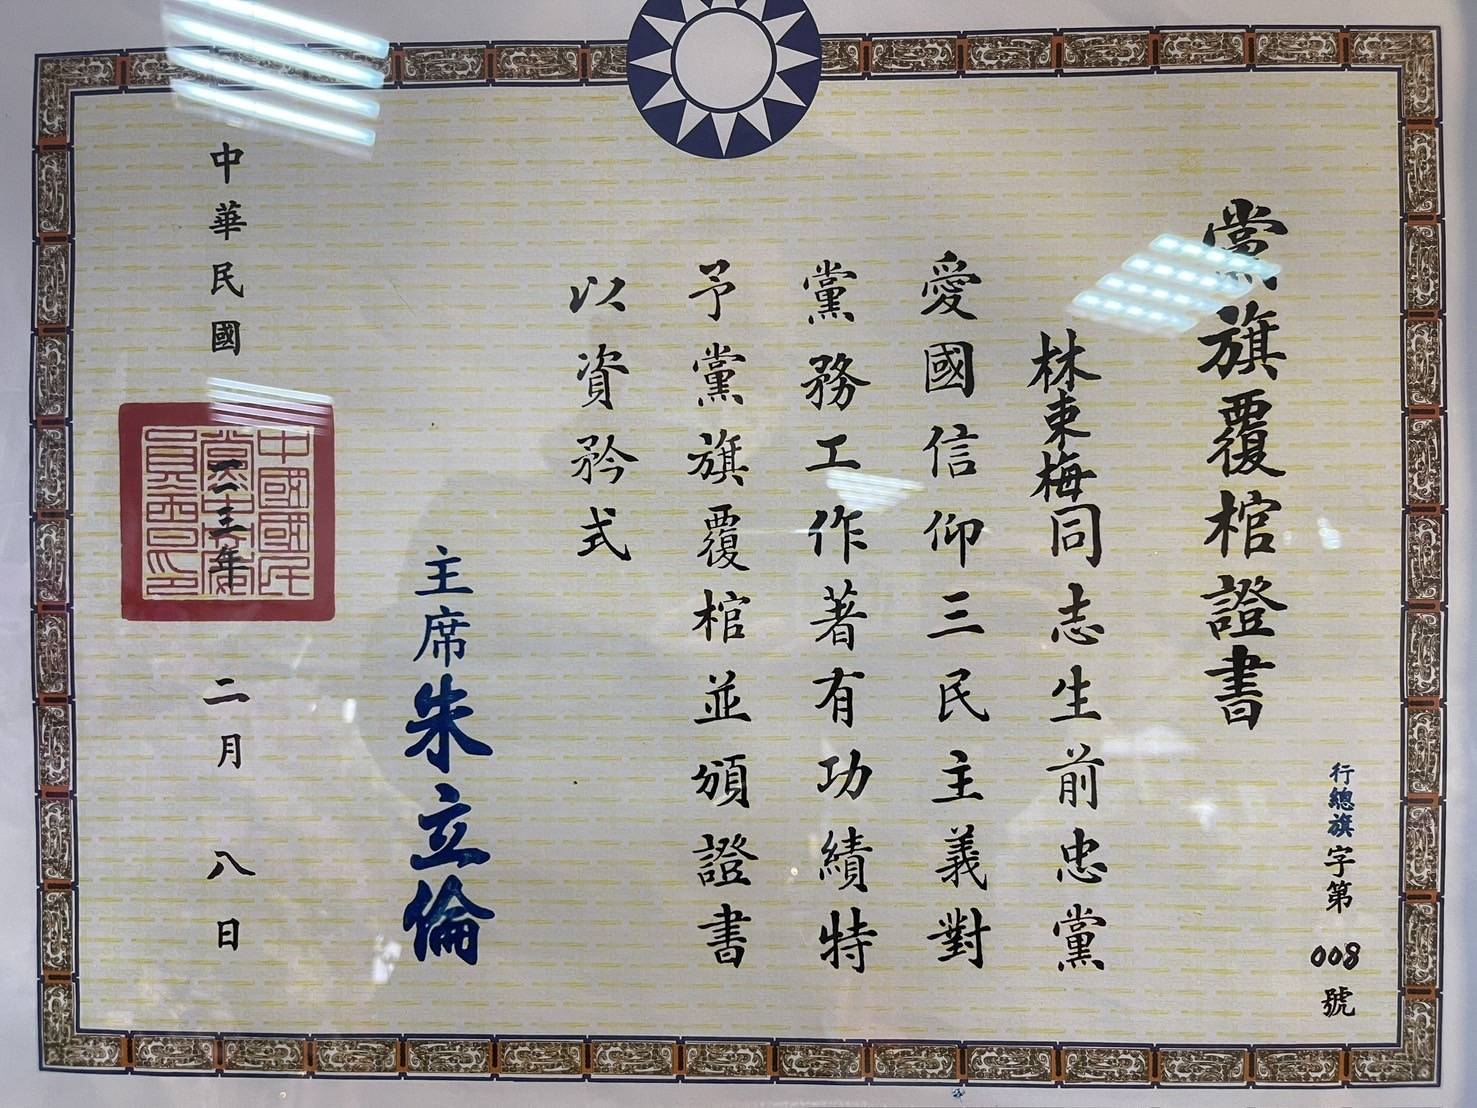 行總旗字第008號
黨旗覆棺證書
林東梅同志生前忠黨
愛國信仰三民主義對
黨務工作著有功績特
予黨旗覆棺並頒證書
以資矜式
主席朱立倫
中華民國一一三年二月八日
中國國民